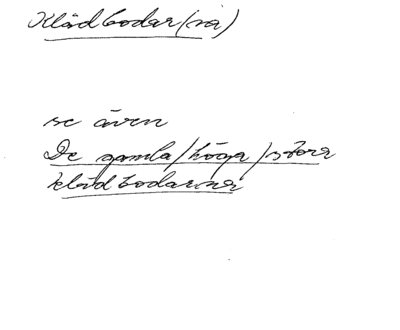 Klädbodar(na)
se även
De gamla/höga/stora
klädbodarna